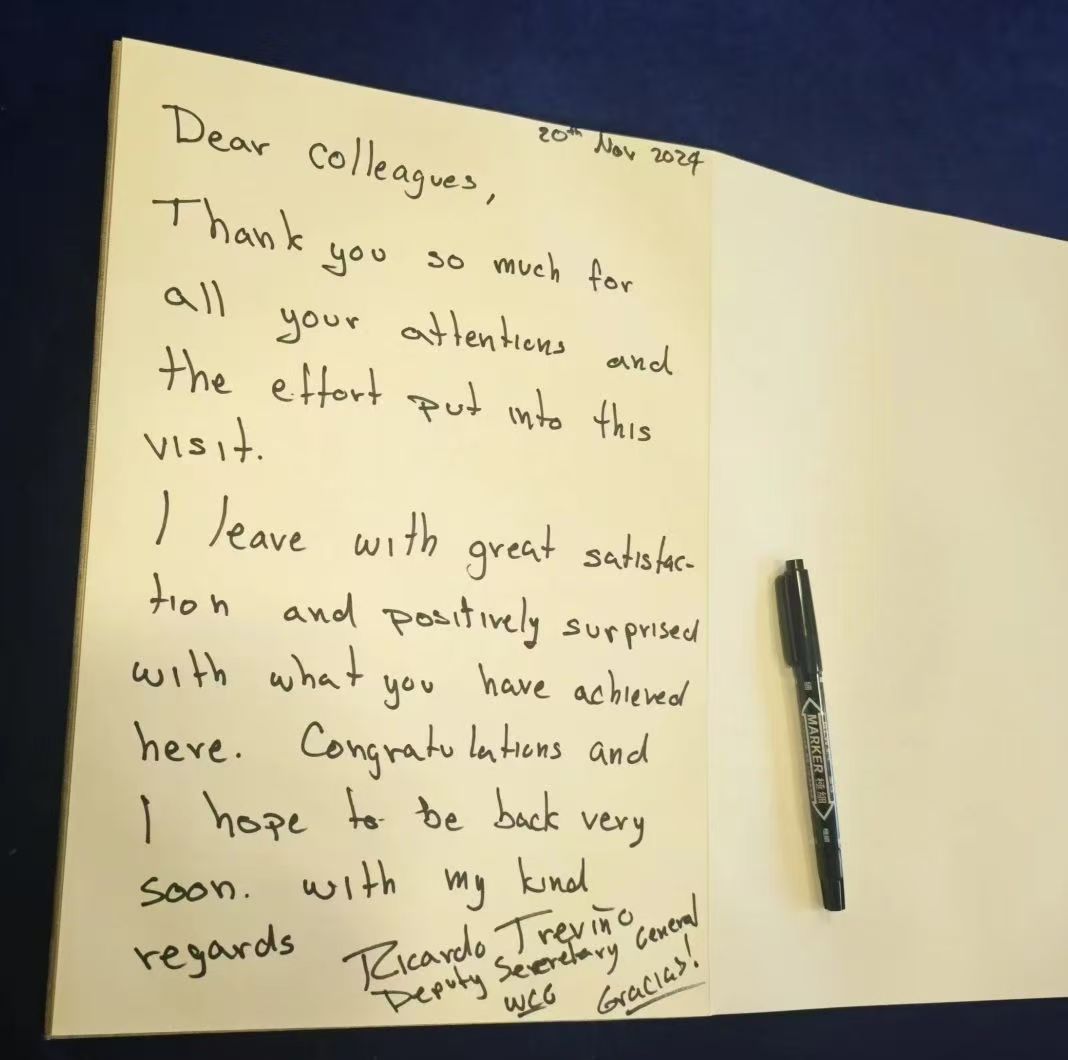 20th Nov 2024
Dear colleagues,
Thank you so much for
all your attentions and
the effort put into this
visit.
I leave with great satisfac-
tion and positively surprised
with what you have achieved
here. Congratulations and
I hope to be back very
soon. with my kind
regards
Ricardo Treviño
Deputy Secretary General
WCO Gracias!
MARKER 極細